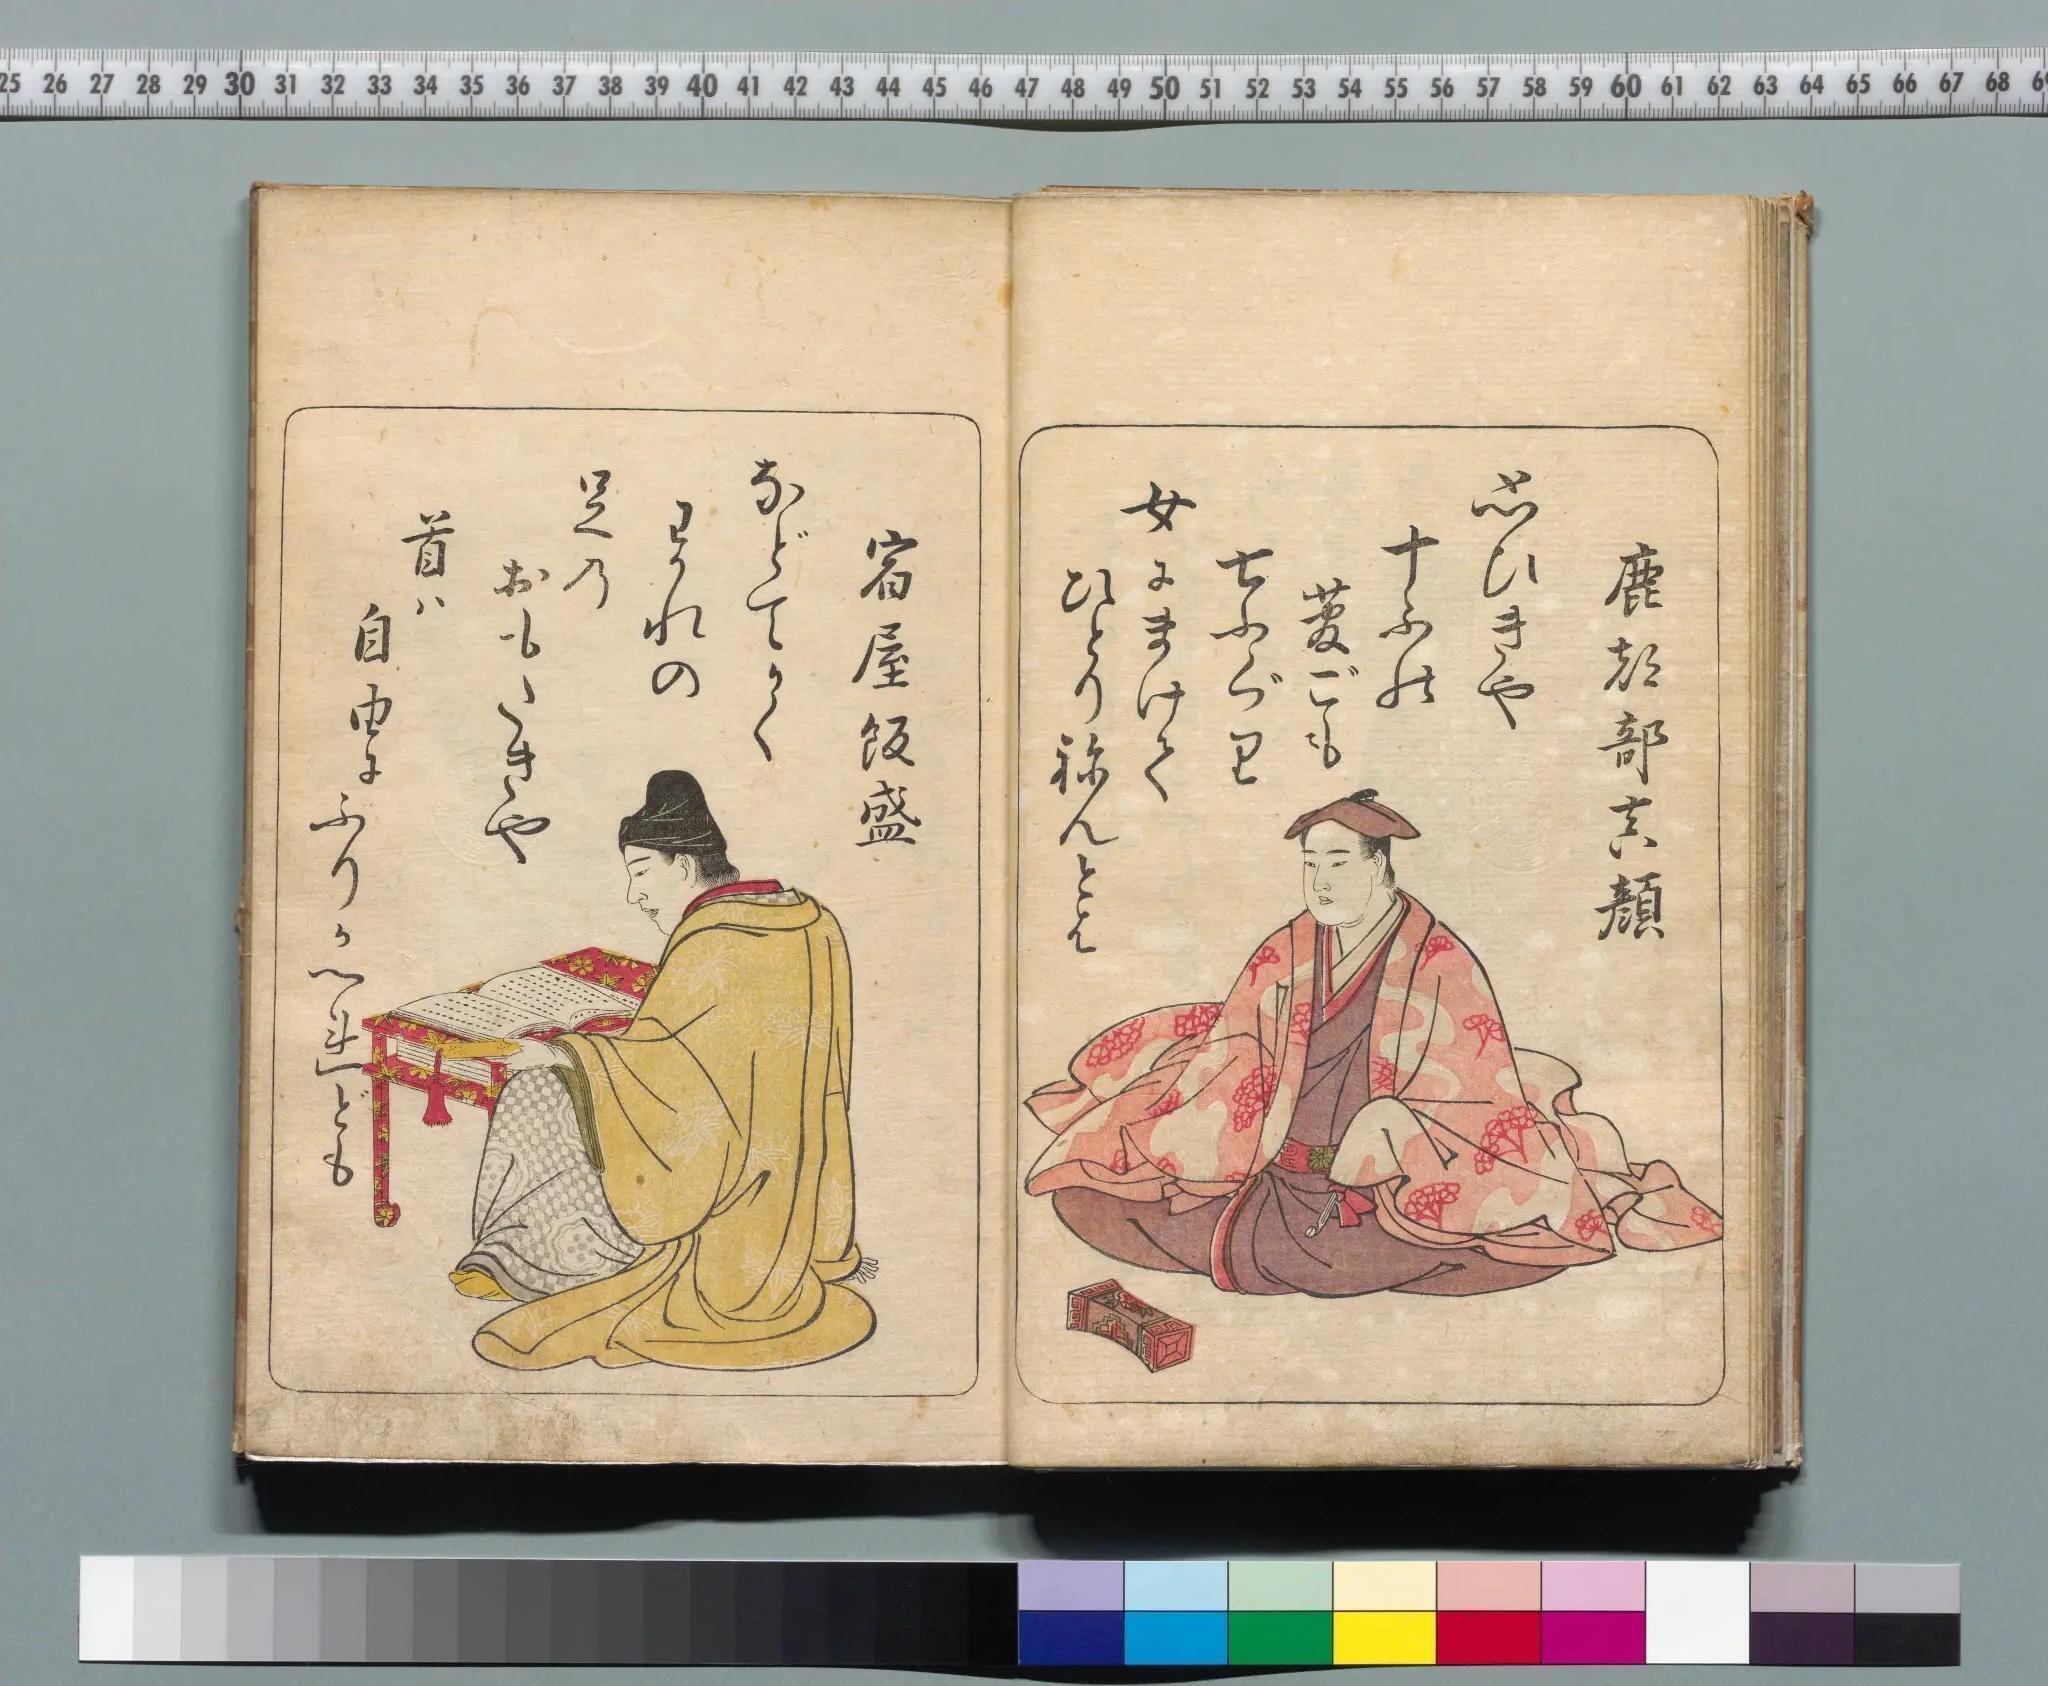 25 26 27 28 29 30 31 32 33 34 35 36 37 38 39 40 41 42 43 44 45 46 47 48 49 50 51 52 53 54 55 56 57 58 59 60 61 62 63 64 65 66 67 68 69
鹿都部真顔
思ひきや
十ふの
菅ごも
七ふぐり
女にまけて
ひとり祢んとは
宿屋飯盛
などてかく
わかれの
足の
おもたきや
首ハ
自由に
ふりかへれども